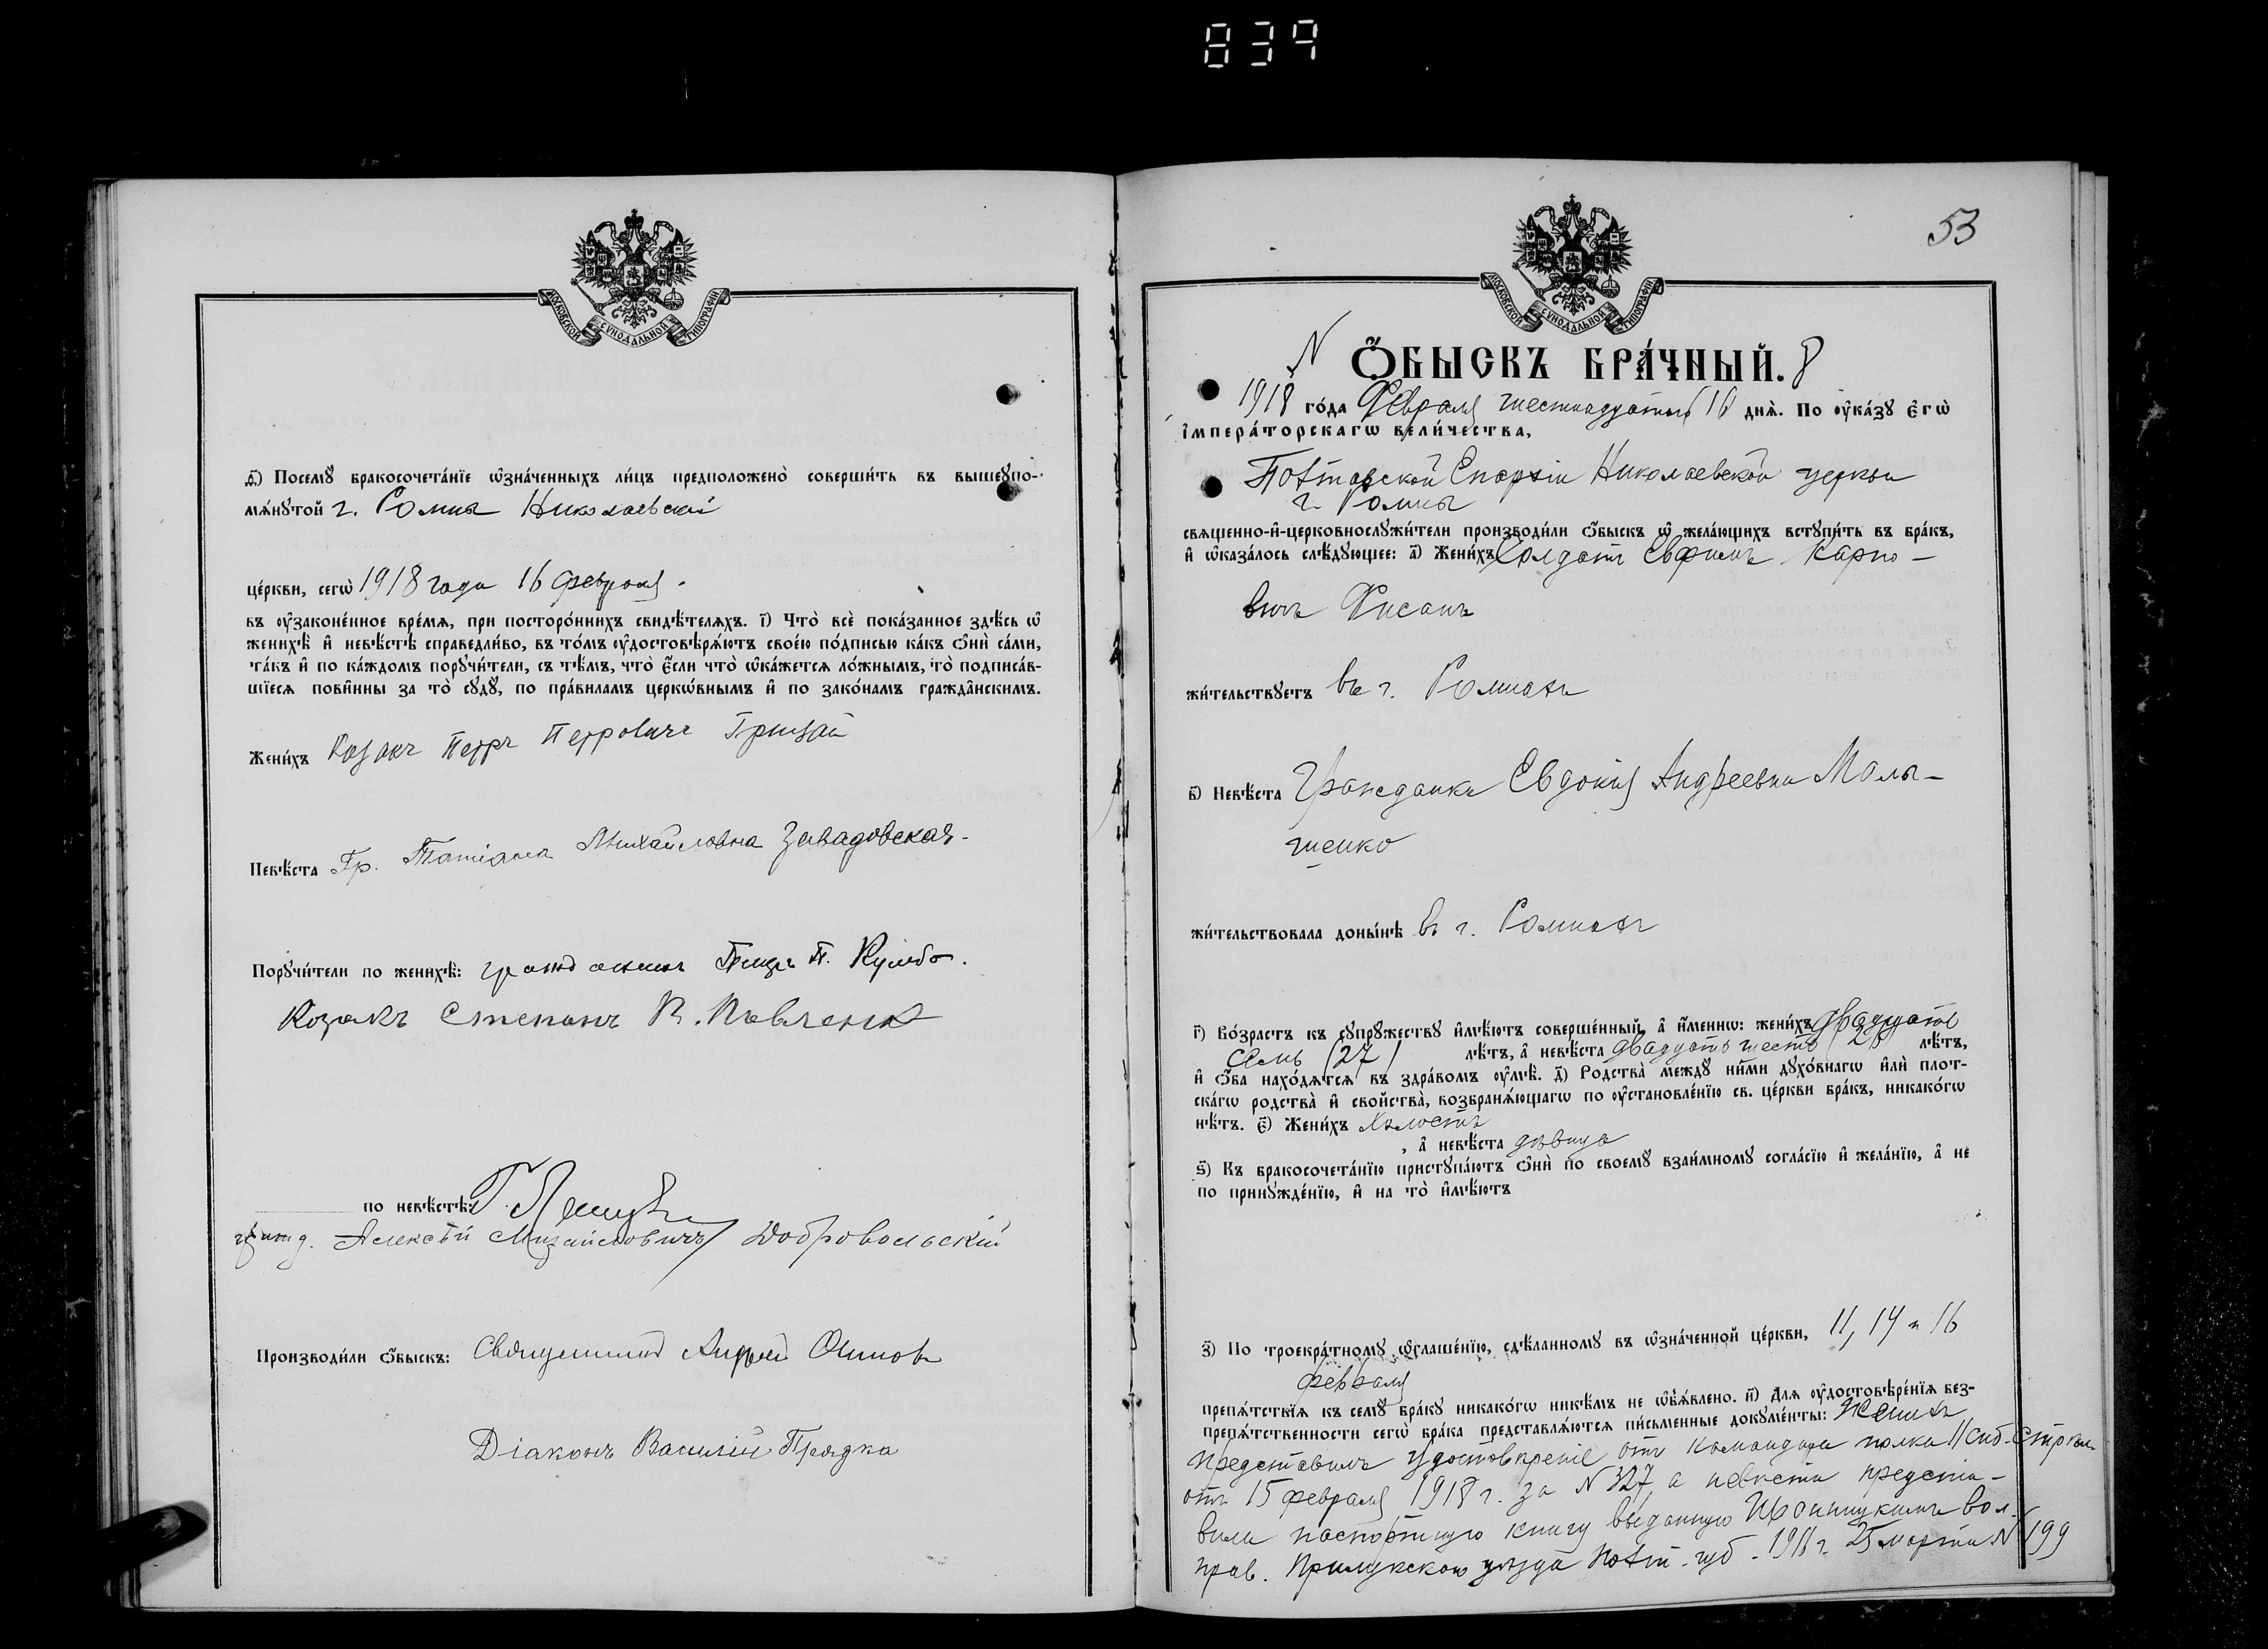 839
МОСКОВСКОЙ СѴНОДАЛЬНОЙ ТИПОГРАФІИ
д҃) Посемꙋ̀ бракосочета́нїе ѡ҆зна́ченныхъ ли́цъ предположено̀ соверши́ть въ вышеꙋпо-
мѧ́нꙋтой г. Ромна Николаевской
це́ркви, сегѡ̀ 1918 года 16 февраля.
въ ᲂу҆законе́нное вре́мѧ, при посторо́ннихъ свидѣ́телѧхъ. і҃) Что̀ всѐ пока́занное здѣ́сь ѡ҆
женихѣ̀ и҆ невѣ́стѣ справедли́во, въ то́мъ ᲂу҆достовѣрѧ́ютъ свое́ю по́дписью ка́къ ѻ҆нѝ са́ми,
та́къ и҆ по ка́ждомъ порꙋчи́тели, съ тѣ́мъ, что̀ є҆́сли что̀ ѡ҆ка́жется ло́жнымъ, то̀ подписа́в-
шїесѧ пови́нны за то̀ сꙋдꙋ̀, по пра́виламъ церко́внымъ и҆ по зако́намъ гражда́нскимъ.
Жени́хъ Козакъ Петръ Петровичъ Грицай
Невѣ́ста Гр. Татіана Михайловна Завадовская.
Порꙋчи́тели по женихѣ̀: гражданинъ П.
Козакъ Степанъ
по невѣ́стѣ: Г.
гражд. Алексѣй Михайловичъ Добровольский
Производи́ли ѻ҆́быскъ: Священникъ Андрей
Діаконъ Василій Прядка
53
МОСКОВСКОЙ СѴНОДАЛЬНОЙ ТИПОГРАФІИ
N Ѻ҆́БЫСКЪ БРА́ЧНЫЙ. 8
1918 го́да Февраля шестнадцатаго 16 днѧ̀. По ᲂу҆ка́зꙋ є҆гѡ̀
і҆мпера́торскагѡ вели́чества,
Полтавской Епархіи Николаевской церкви
г. Ромна
свѧщенно-и҆-церковнослꙋжи́тели производи́ли ѻ҆́быскъ ѡ҆ жела́ющихъ встꙋпи́ть въ бра́къ,
и҆ ѡ҆каза́лось слѣ́дꙋющее: а҃) Жени́хъ Солдатъ Евфимъ Карпо-
вичъ Фисанъ
жи́тельствꙋетъ въ г. Ромнахъ
в҃) Невѣ́ста Гражданка Евдокія Андреевна Малы-
шенко
жи́тельствовала доны́нѣ въ г. Ромнахъ
г҃) Во́зрастъ къ сꙋпрꙋ́жествꙋ и҆мѣ́ютъ соверше́нный, а҆ и҆́менно: жени́хъ двадцать
семь (27) лѣ́тъ, а҆ невѣ́ста двадцать шесть (26 лѣ́тъ,
и҆ ѻ҆́ба нахо́дѧтсѧ въ здра́вомъ ᲂу҆мѣ̀. д҃) Родства̀ междꙋ̀ ни́ми дꙋхо́внагѡ и҆лѝ плот-
ска́гѡ родства̀ и҆ сво́йства̀, возбранѧ́ющагѡ по ᲂу҆становле́нїю св. це́ркви бра́къ, никако́гѡ
нѣ́тъ. є҃) Жени́хъ холостъ
, а҆ невѣ́ста дѣвица
ѕ҃) Къ бракосочета́нїю пристꙋпа́ютъ ѻ҆нѝ по своемꙋ̀ взаи́мномꙋ согла́сїю и҆ жела́нїю, а҆ не
по принꙋжде́нїю, и҆ на то̀ и҆мѣ́ютъ
з҃) По троекра́тномꙋ ѡ҆глаше́нїю, сдѣ́ланномꙋ въ ѡ҆зна́ченной це́ркви, 11, 14 и 16
февраля
препѧ́тствїѧ къ семꙋ̀ бра́кꙋ никако́гѡ никѣ́мъ не ѡ҆б̾ѧ́влено. и҃) Длѧ ᲂу҆достовѣре́нїѧ без-
препѧ́тственности сегѡ̀ бра́ка представлѧ́ютсѧ пи́сьменные докꙋме́нты: Женихъ
представилъ удостовѣреніе отъ командира полка 11 Сиб. стрѣлк.
отъ 15 февраля 1918 г. за N 327, а невѣста предста-
вила паспортную книгу выданную вол.
прав. Прилукскаго уѣзда Полт. губ. 25 марта N 199